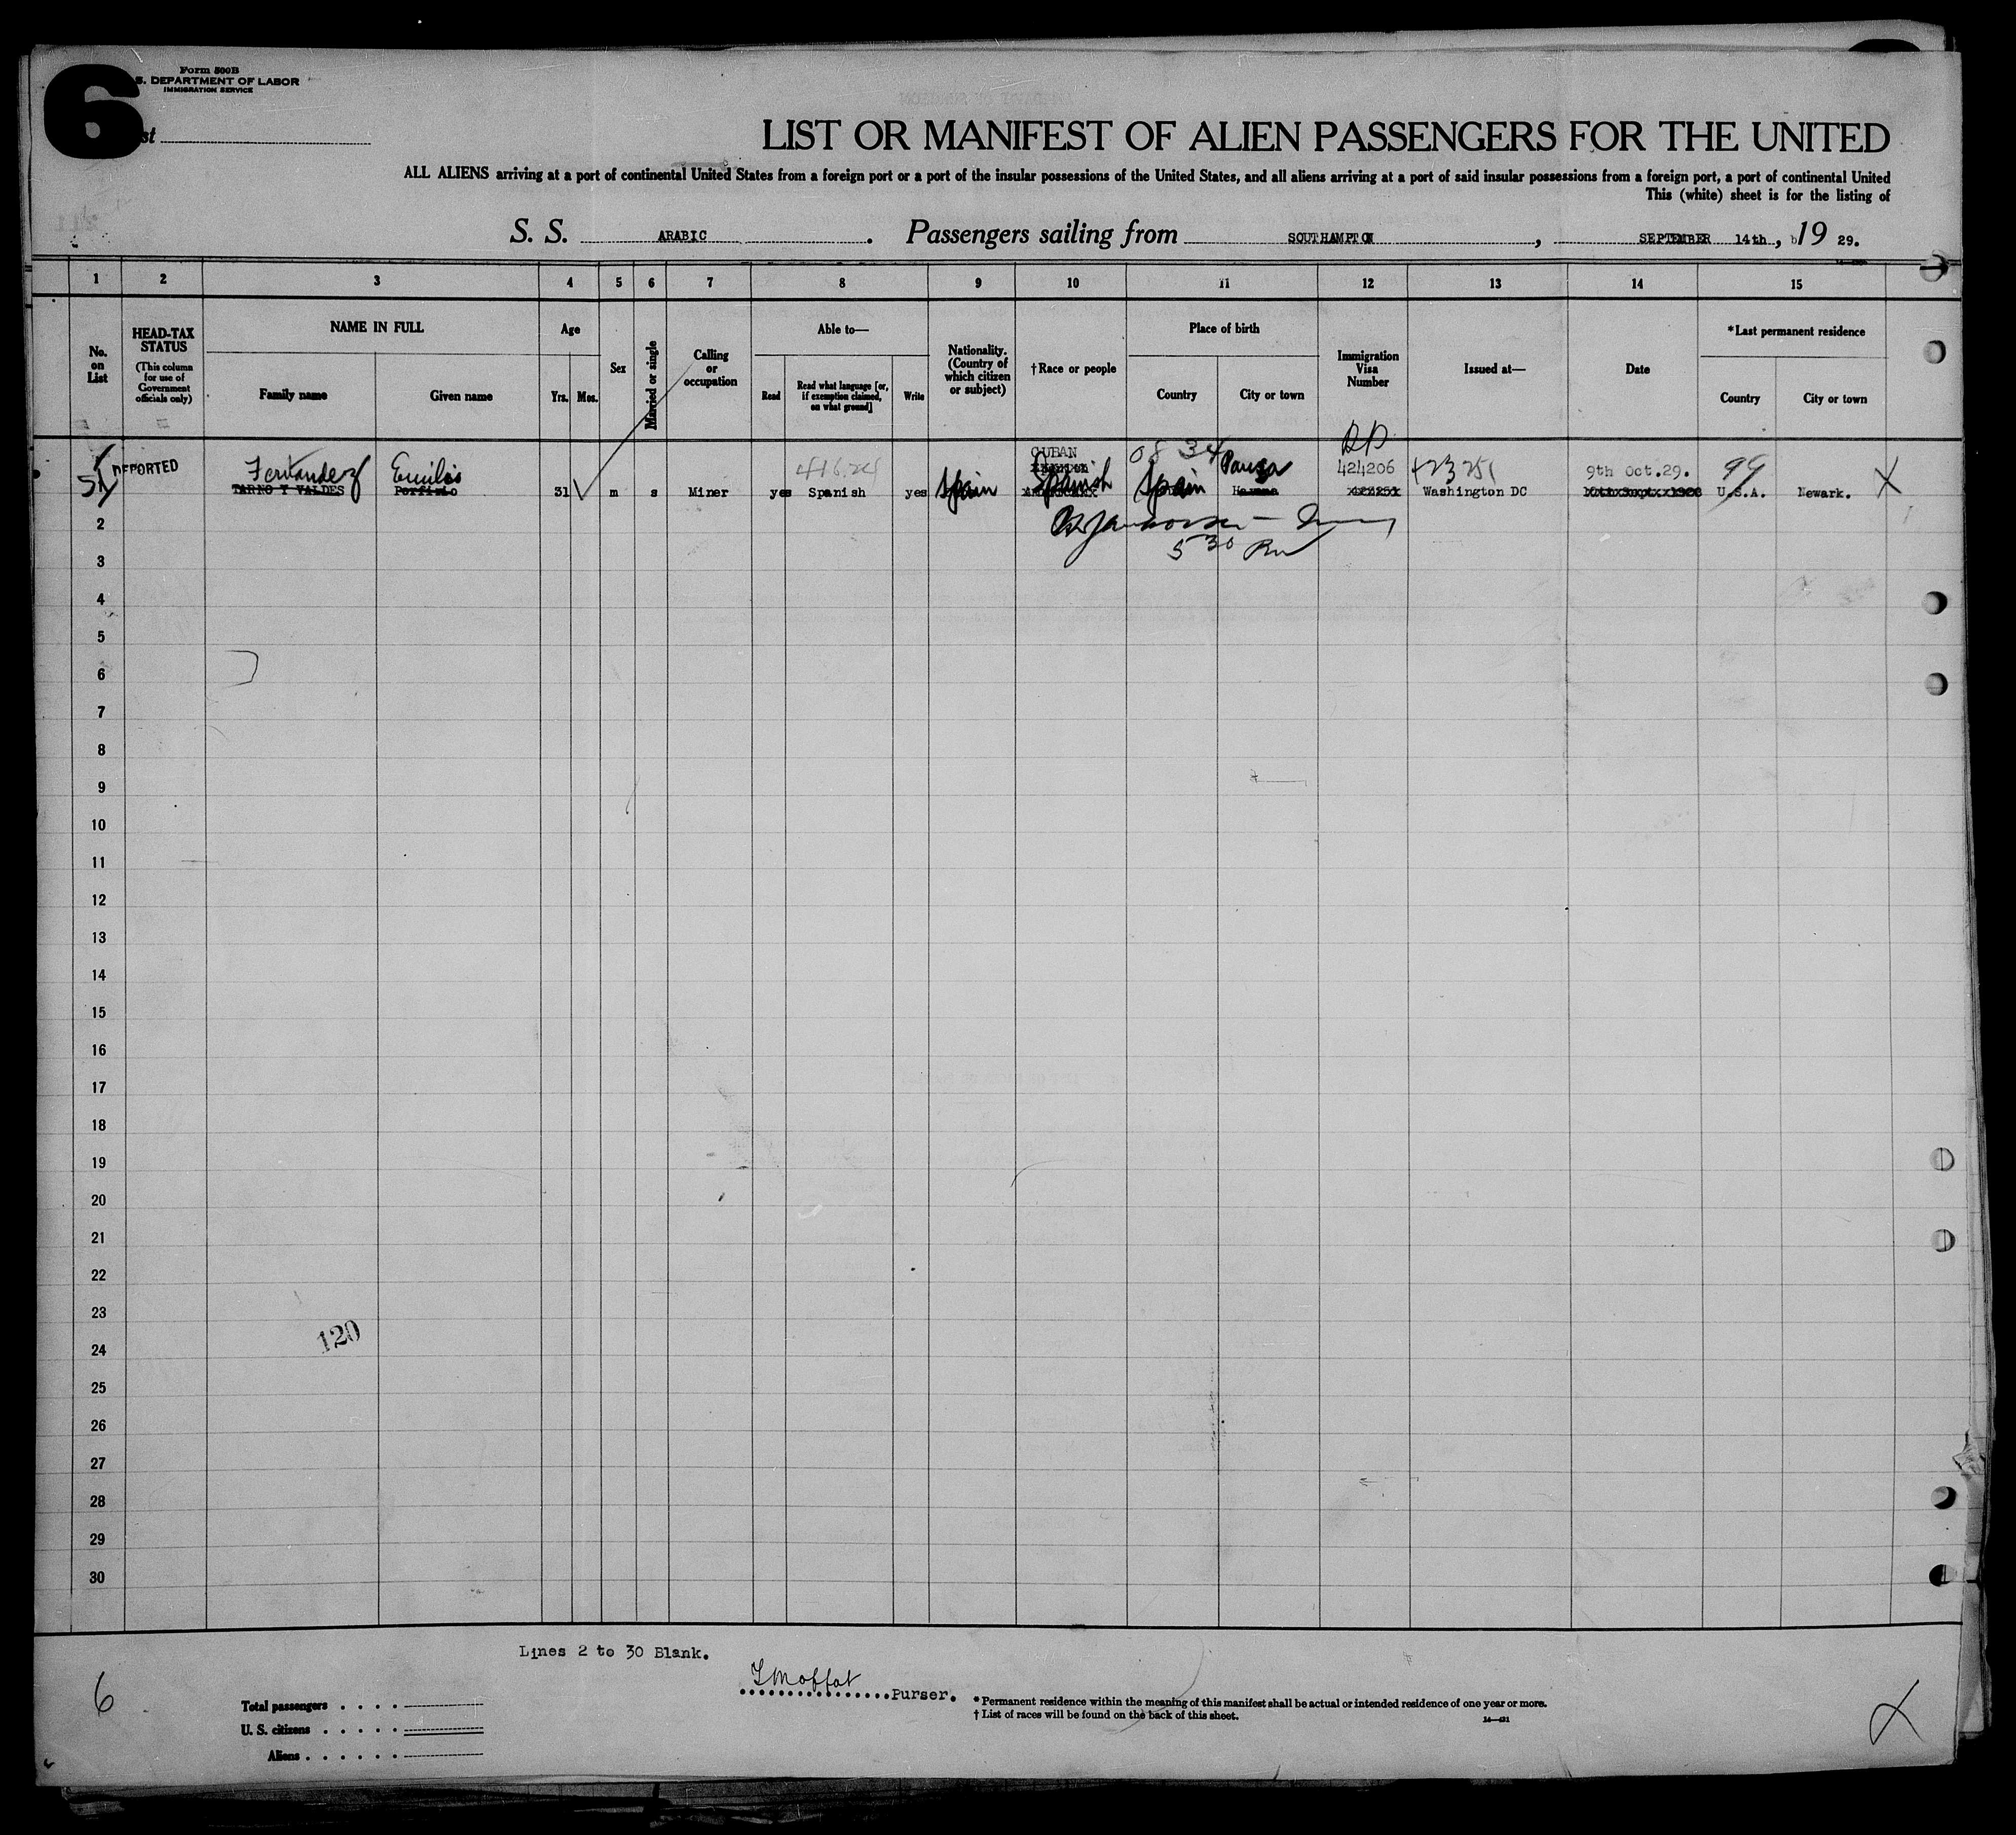 6
Form 500B
S. DEPARTMENT OF LABOR
IMMIGRATION SERVICE
st
LIST OR MANIFEST OF ALIEN PASSENGERS FOR THE UNITED
ALL ALIENS arriving at a port of continental United States from a foreign port or a port of the insular possessions of the United States, and all aliens arriving at a port of said insular possessions from a foreign port, a port of continental United
This (white) sheet is for the listing of
S. S. ARABIC. Passengers sailing from SOUTHAMPTON, SEPTEMBER 14th, 19 29.
1 2 3 4 5 6 7 8 9 10 11 12 13 14 15
No. on List
HEAD-TAX STATUS
(This column for use of Government officials only)
NAME IN FULL
Family name
Given name
Age
Yrs. Mos.
Sex
Married or single
Calling or occupation
Able to—
Read
Read what language [or, if exemption claimed, on what ground]
Write
Nationality. (Country of which citizen or subject)
†Race or people
Place of birth
Country
City or town
Immigration Visa Number
Issued at—
Date
*Last permanent residence
Country
City or town
CUBAN 08 34
DEPORTED Fernandez Emilio 424206 423251 9th Oct.29. 99
TARNO Y VALDES Porfirio 31 m s Miner yes Spanish yes Spain Spanish Spain Havana Washington DC U.S.A. Newark. X
2
5 30
3
4
5
6
7
8
9
10
11
12
13
14
15
16
17
18
19
20
21
22
23
120
24
25
26
27
28
29
30
Lines 2 to 30 Blank.
6
Moffat
Purser.
Total passengers . . . .
U. S. citizens . . . . .
Aliens . . . . . .
* Permanent residence within the meaning of this manifest shall be actual or intended residence of one year or more.
† List of races will be found on the back of this sheet.
X